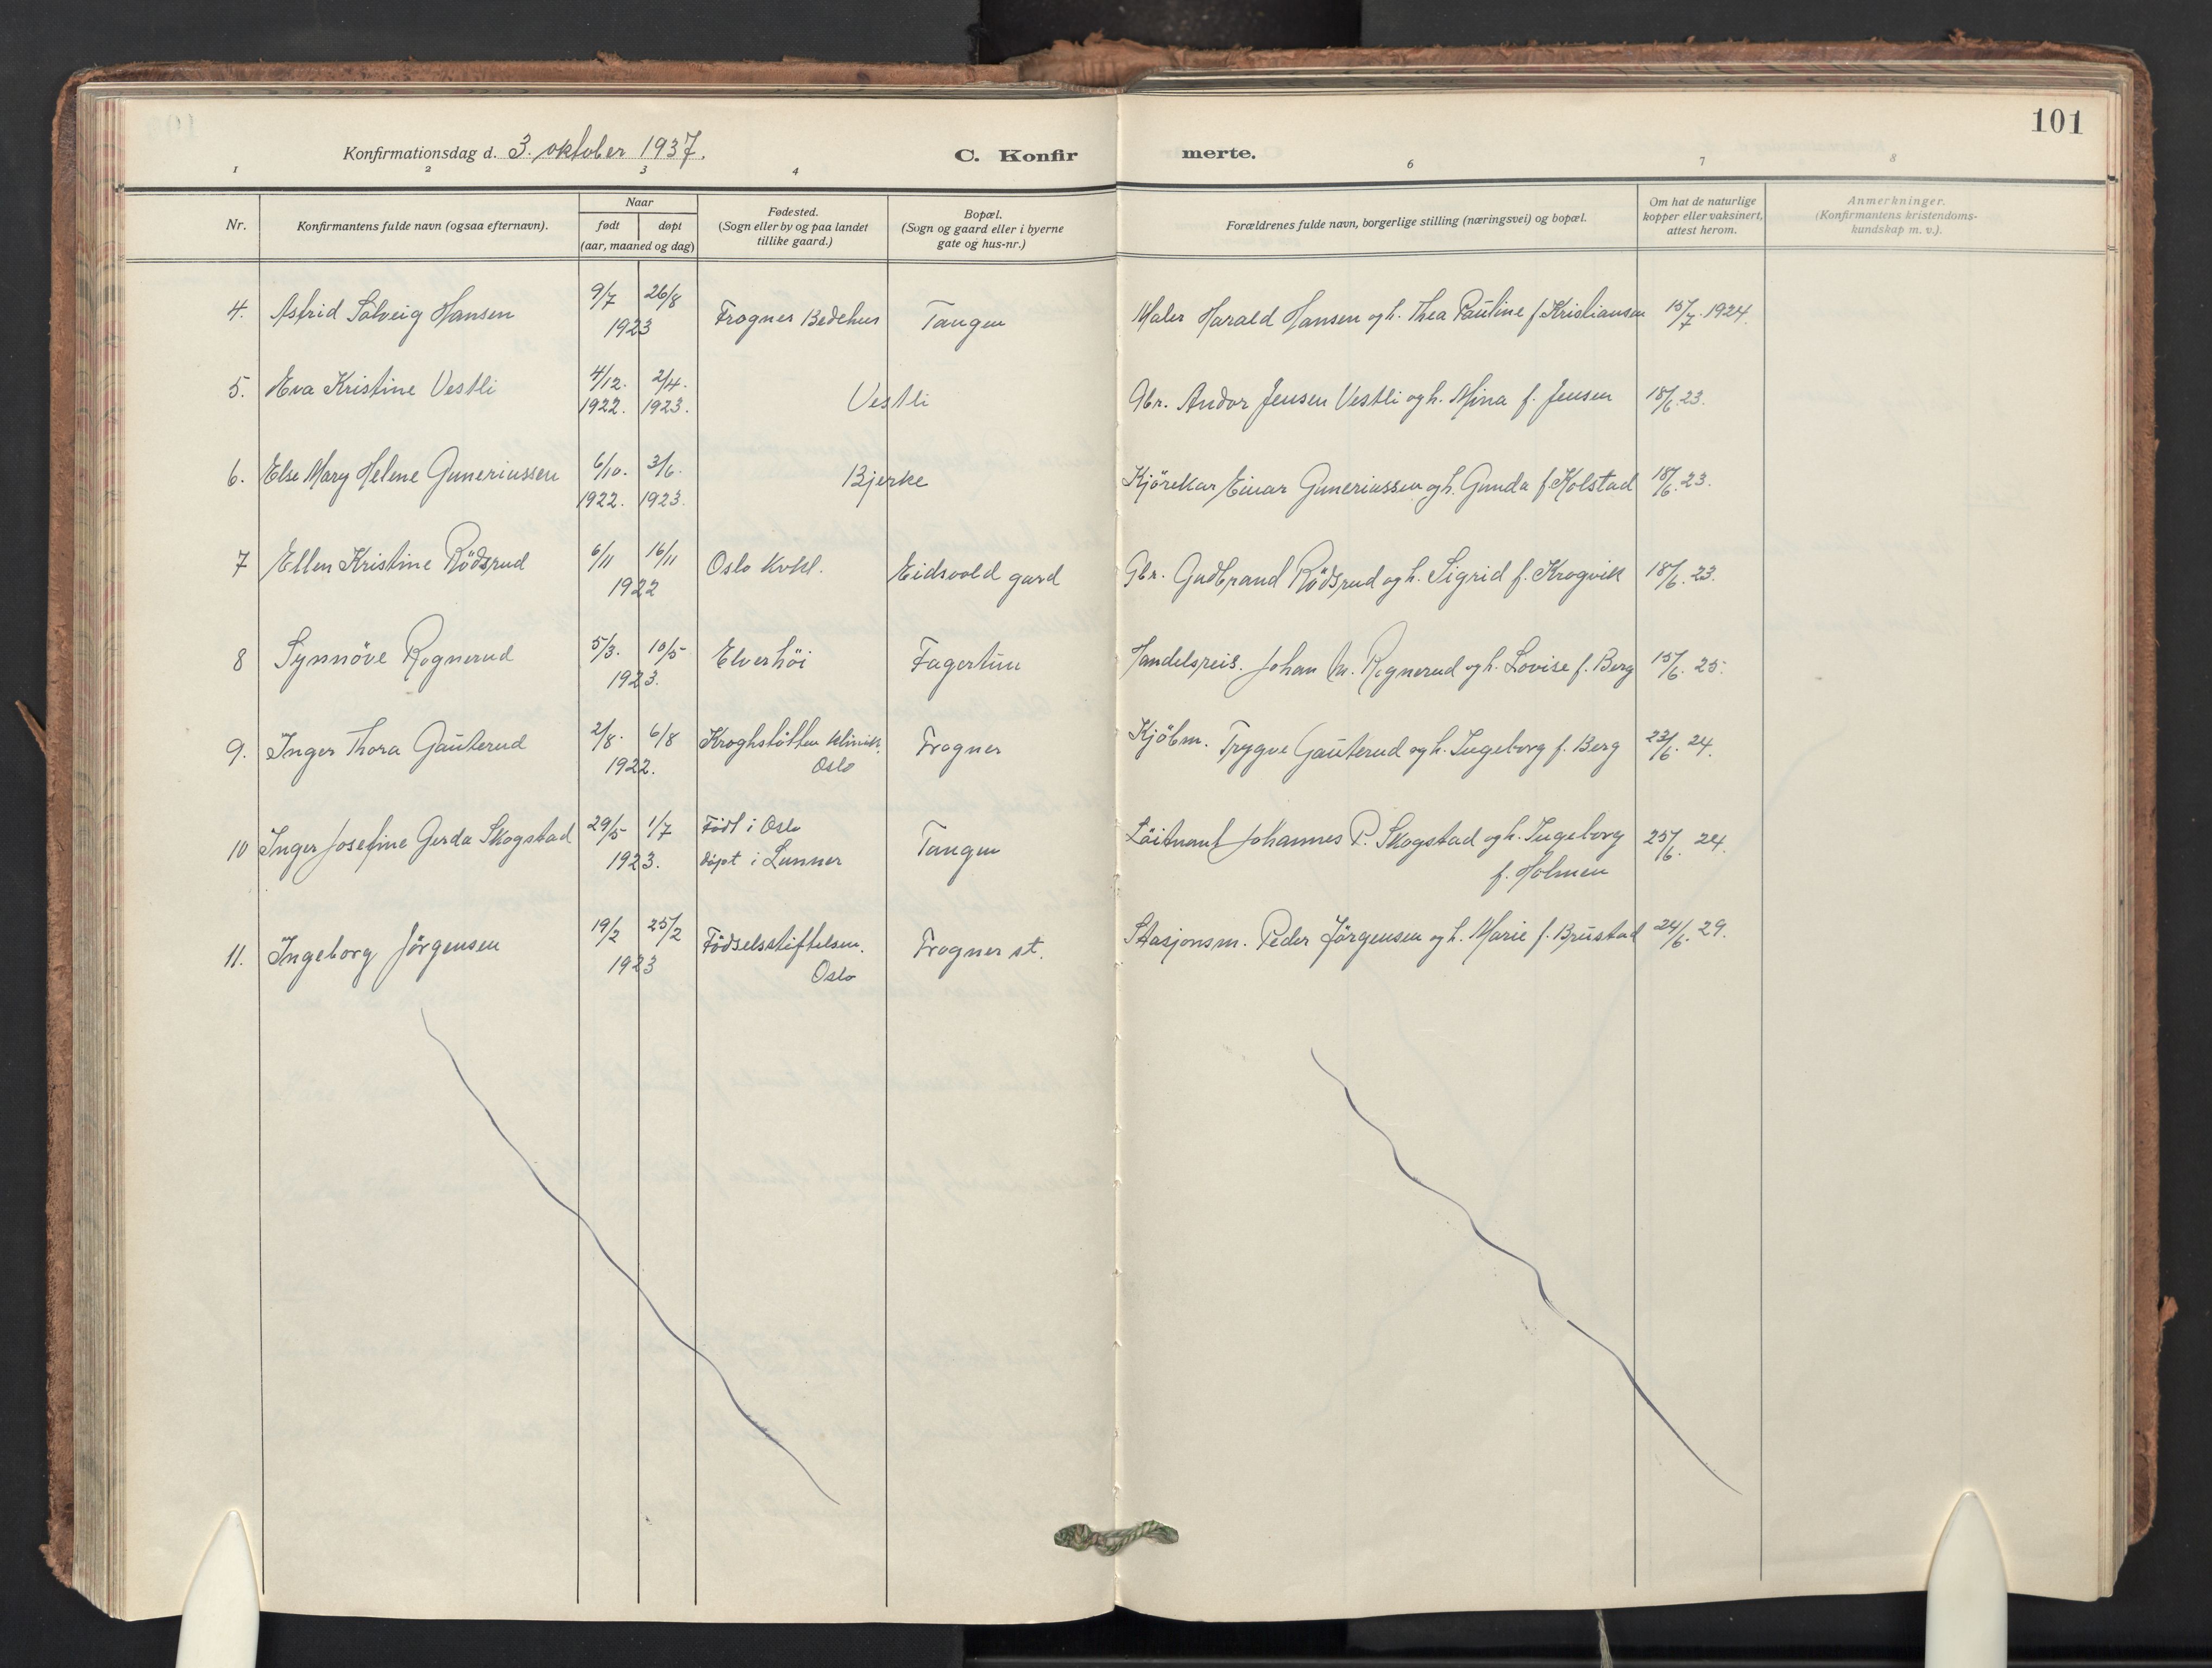 101
Konfirmationsdag d. 3. oktober 1937.
C. Konfir merte.
1 2 3 4 6 7 8
Nr.
Konfirmantens fulde navn (ogsaa efternavn).
Naar
født døpt
(aar, maaned og dag)
Fødested.
(Sogn eller by og paa landet
tillike gaard.)
Bopæl.
(Sogn og gaard eller i byerne
gate og hus-nr.)
Forældrenes fulde navn, borgerlige stilling (næringsvei) og bopæl.
Om hat de naturlige
kopper eller vaksinert,
attest herom.
Anmerkninger.
(Konfirmantens kristendoms-
kundskap m. v.).
4. Astrid Solveig Hansen 9/7 26/8 Frogner Bedehus Tangen Maler Harald Hansen og h. Thea Pauline f Kristiansen 15/7. 1924.
1923
5. Eva Kristine Vestli 4/12. 2/4. Vestli Gbr. Andor Jensen Vestli og h. Mina f. Jensen 18/6. 23.
1922. 1923.
6. Else Mary Helene Guneriussen 6/10. 3/6. Bjerke Kjörekar Einar Guneriussen og h. Gunda f. Kolstad 18/6. 23.
1922. 1923.
7 Ellen Kristine Rödsrud 6/11 16/11 Oslo Kvkl. Eidsvold gard Gbr. Gudbrand Rödsrud og h. Sigrid f. Krogvik 18/6. 23.
1922
8 Synnöve Rognerud 5/3. 10/5 Elverhöi Fagertun Handelsreis. Johan M. Rognerud og h. Lovise f. Berg 15/6. 25.
1923.
9. Inger Thora Gauterud 2/8. 6/8 Kroghstötten klinik. Frogner Kjöbm. Trygve Gauterud og h. Ingeborg f. Berg 23/6. 24.
1922. Oslo
10 Inger Josefine Gerda Skogstad 29/5 1/7 Födt i Oslo Tangen Löitnant Johannes P. Skogstad og h. Ingeborg 25/6. 24.
1923. döpt i Lunner f. Holmen
11. Ingeborg Jörgensen 19/2 25/2 Födselsstiftelsen. Frogner st. Stasjonsm. Peder Jörgensen og h. Marie f. Brustad 24/6. 29.
1923 Oslo